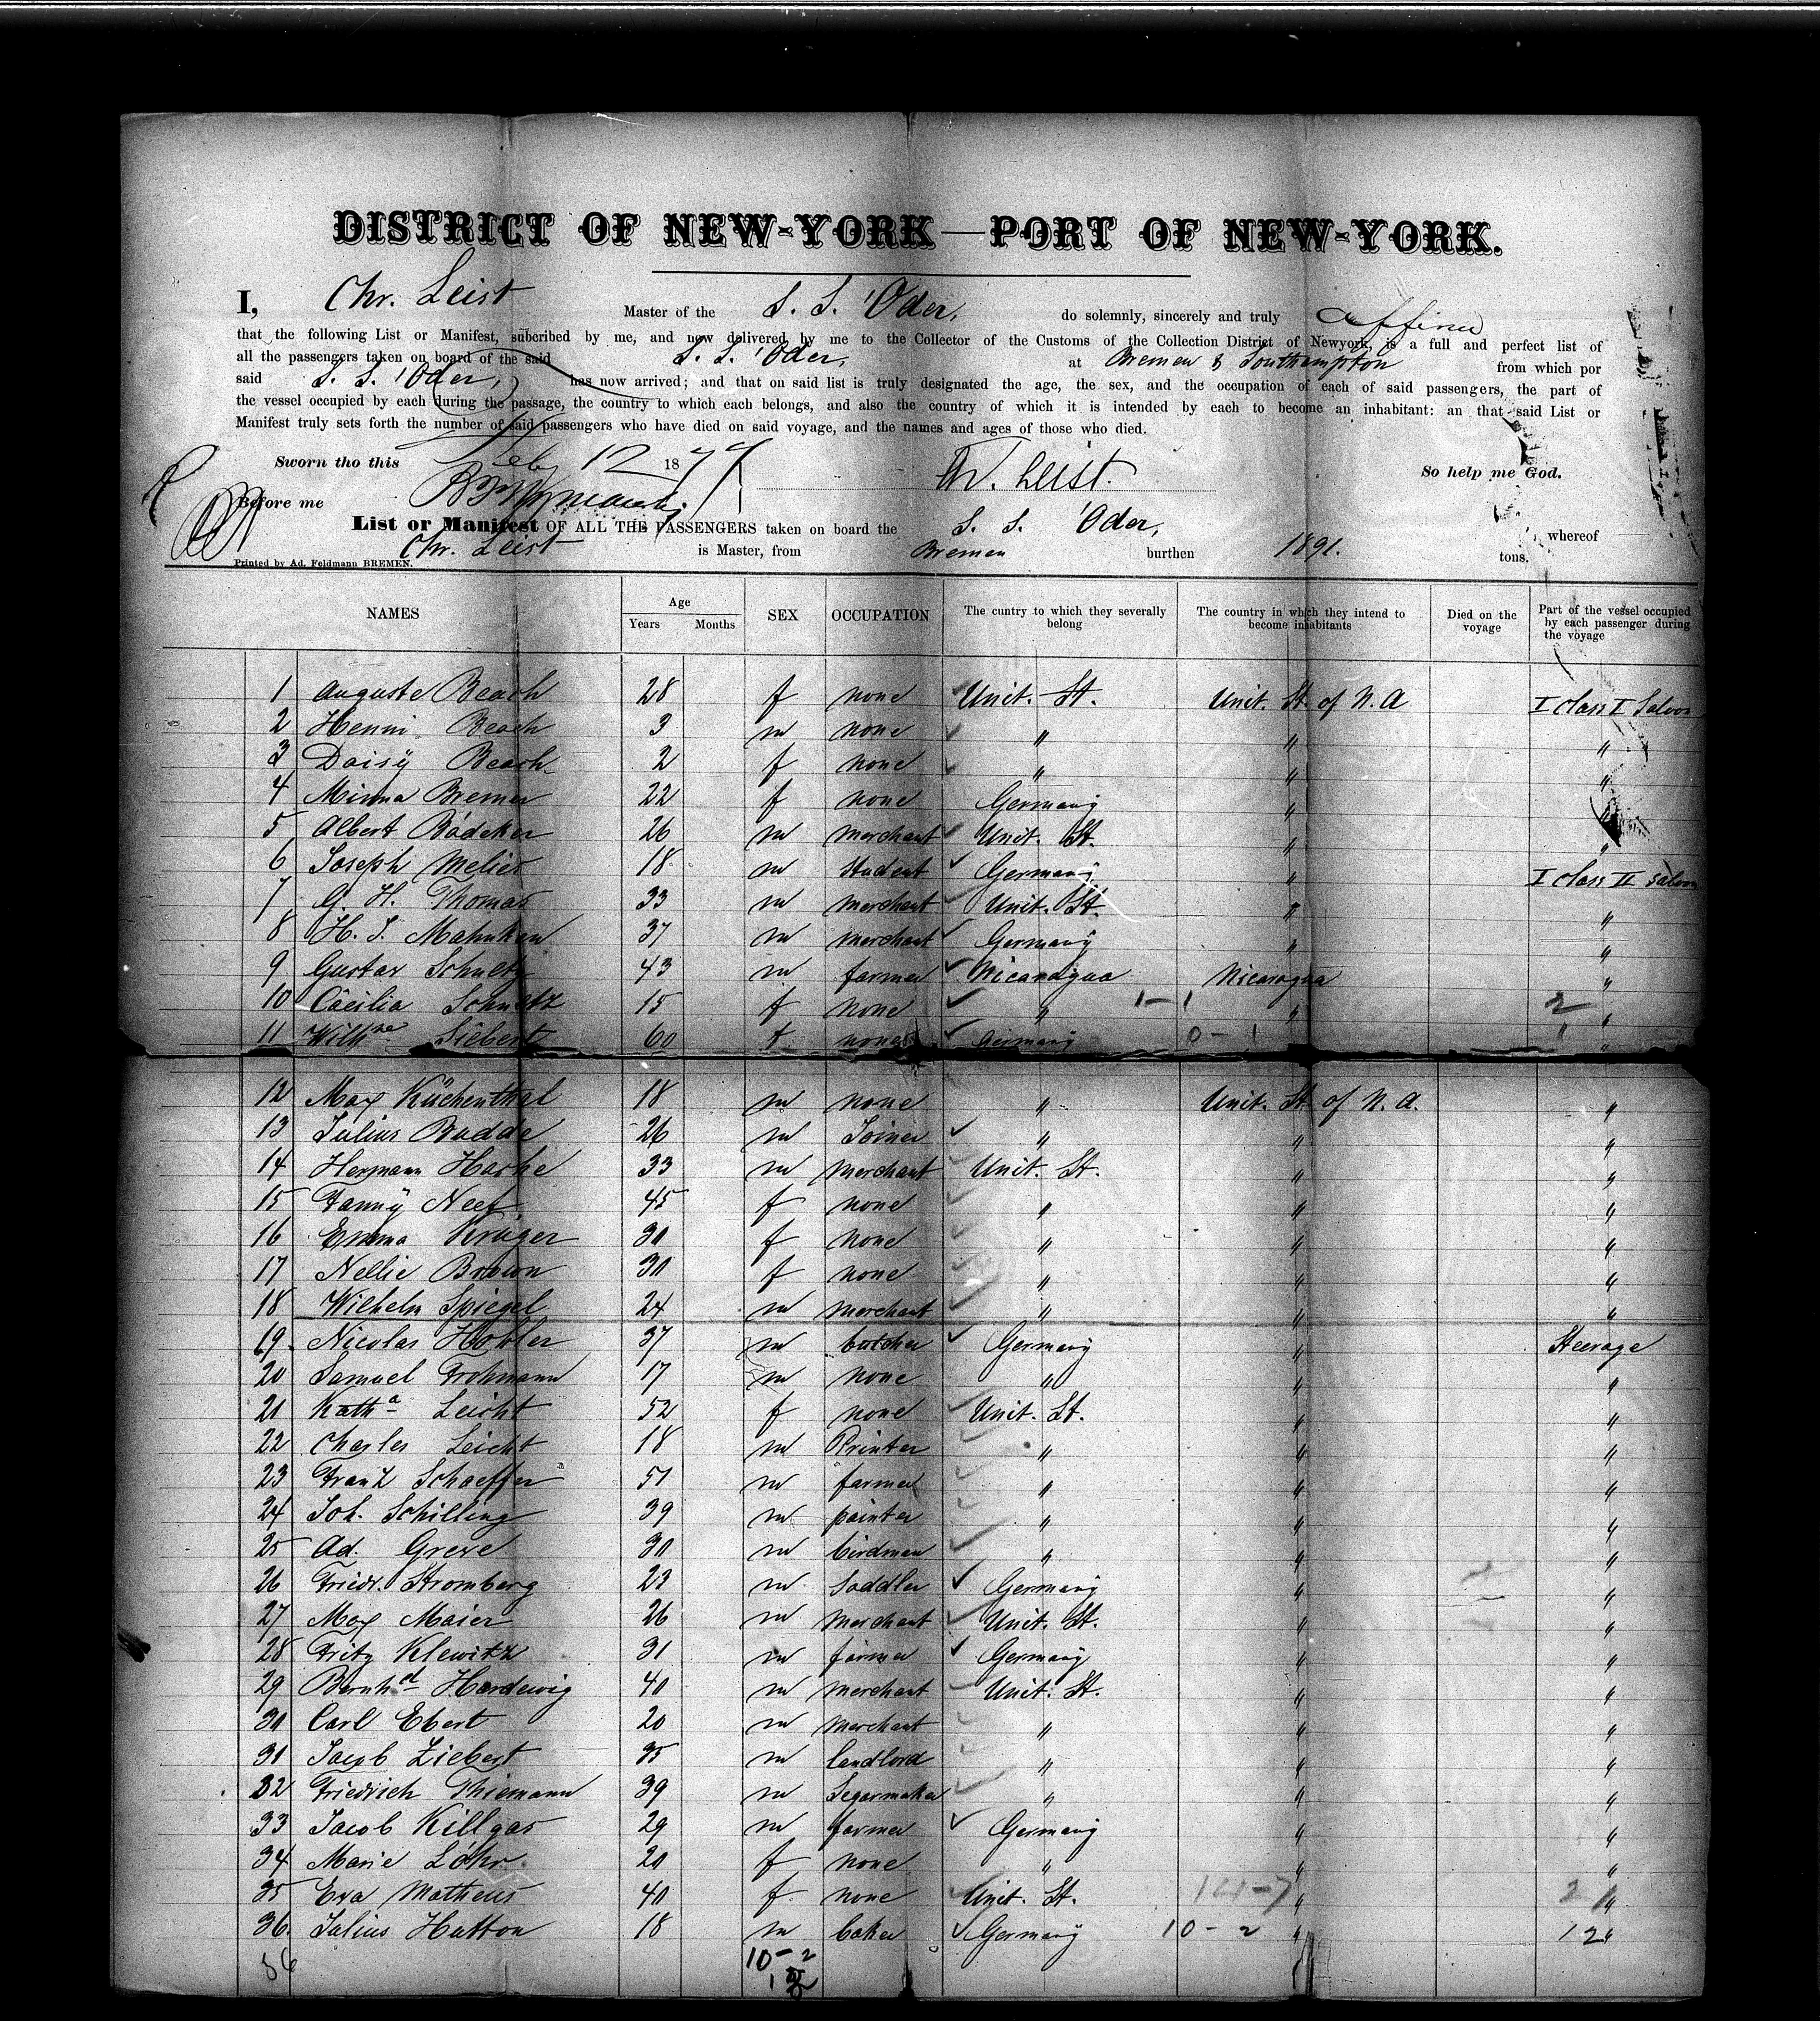 DISTRICT OF NEW-YORK—PORT OF NEW-YORK.
I, Chr. Leist Master of the S. S. 'Oder, do solemnly, sincerely and truly affirm
that the following List or Manifest, subcribed by me, and now delivered by me to the Collector of the Customs of the Collection District of Newyork, is a full and perfect list of
all the passengers taken on board of the said S. S. 'Oder, at Bremen & Southampton from which por
said S. S. 'Oder, has now arrived; and that on said list is truly designated the age, the sex, and the occupation of each of said passengers, the part of
the vessel occupied by each during the passage, the country to which each belongs, and also the country of which it is intended by each to become an inhabitant: an that said List or
Manifest truly sets forth the number of said passengers who have died on said voyage, and the names and ages of those who died.
Sworn tho this Feby 12 1877 Chr. Leist. So help me God.
Before me
List or Manifest OF ALL THE PASSENGERS taken on board the S. S. 'Oder, whereof
Chr. Leist is Master, from Bremen burthen 1891. tons.
Printed by Ad. Feldmann BREMEN.
NAMES Age Years Months SEX OCCUPATION The cuntry to which they severally belong The country in which they intend to become inhabitants Died on the voyage Part of the vessel occupied by each passenger during the voyage
1 Auguste Beach 28 f none Unit. St. Unit. St. of N. A I class I Saloon
2 Henni Beach 3 m none " " "
3 Daisy Beach 2 f none " " "
4 Minna Bremer 22 f none Germany " "
5 Albert Bödeker 26 m merchant Unit. St. " "
6 Joseph Melies 18 m student Germany " I class II saloon
7 G. H. Thomas 33 m merchant Unit. St. " "
8 H. J. Mahnken 37 m merchant Germany " "
9 Gustav Schultz 43 m farmer Nicaragua Nicaragua "
10 Cäcilia Schultz 15 f none " 1-1 " 2 "
11 Wilhne Siebert 60 f none Germany 0-1 " "
12 Max Küchenthal 18 m none " Unit. St. of N. A. "
13 Julius Budde 26 m Joiner " " "
14 Hermann Harke 33 m merchant Unit. St. " "
15 Fanny Neef 45 f none " " "
16 Emma Krüger 30 f none " " "
17 Nellie Brown 30 f none " " "
18 Wilhelm Spiegel 24 m merchant " " "
19 Nicolas Hobler 37 m butcher Germany " Steerage
20 Samuel Frohmann 17 m none " " "
21 Katha Leicht 52 f none Unit. St. " "
22 Charles Leicht 18 m Printer " " "
23 Franz Schaeffer 51 m farmer " " "
24 Joh. Schilling 39 m painter " " "
25 Ad. Greve 30 m birdman " " "
26 Friedr. Stromberg 23 m saddler Germany " "
27 Max Maier 26 m merchant Unit. St. " "
28 Fritz Klewitz 31 m farmer Germany " "
29 Bernhd Hardewig 40 m merchant Unit. St. " "
30 Carl Ebert 20 m merchant " " "
31 Jacob Ziebert 35 m landlord " " "
32 Friedrich Thiemann 39 m Segarmaker " " "
33 Jacob Killgas 29 m farmer Germany " "
34 Marie Löhr 20 f none " " "
35 Eva Matheus 40 f none Unit. St. " "
36. Julius Hutton 18 m baker Germany 10-2 " 12 "
10-2